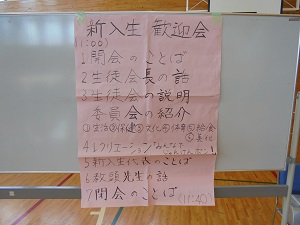 新入生 歓迎会
(11:00)
1 開会のことば
2 生徒会長の話
3 生徒会の説明
委員会の紹介
①生活②保健③文化④体育⑤給食
⑥美化
4 レクリエーション
5 新入生代表のことば
6 教頭先生の話
7 閉会のことば (11:40)